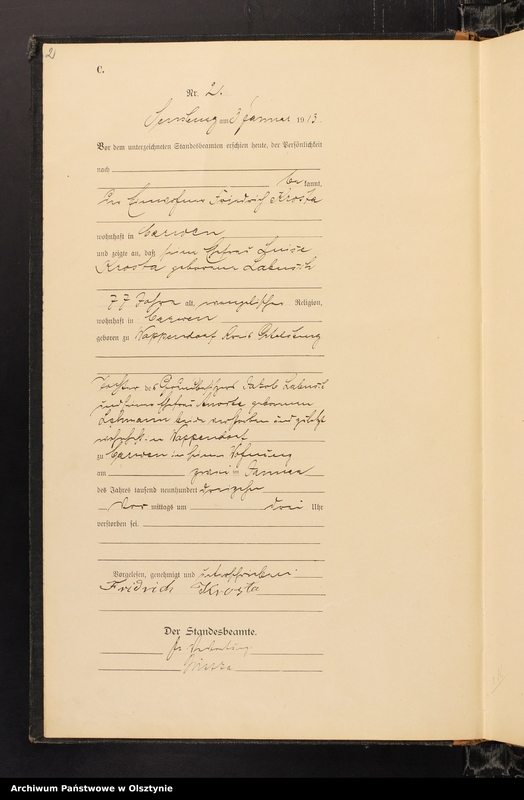 2
C.
Nr. 2.
Sensburg am 3 Januar 1913.
Vor dem unterzeichneten Standesbeamten erschien heute, der Persönlichkeit
nach
be kannt,
Der Friedrich Krosta
wohnhaft in Carwen
und zeigte an, daß seine Ehefrau Luise
Krosta geborene Labusch
77 Jahre alt, evangelischer Religion,
wohnhaft in Carwen
geboren zu Wappendorf Kreis Ortelsburg
Tochter des Grundbesitzers Jakob Labusch
und seiner Ehefrau geborenen
Lehmann beide verstorben und zuletzt
wohnhaft in Wappendorf
zu Carwen in seiner Wohnung
am zwei ten Januar
des Jahres tausend neunhundert dreizehn
Vor mittags um drei Uhr
verstorben sei.
Vorgelesen, genehmigt und unterschrieben.
Fridrich Krosta
Der Standesbeamte.
Archiwum Państwowe w Olsztynie